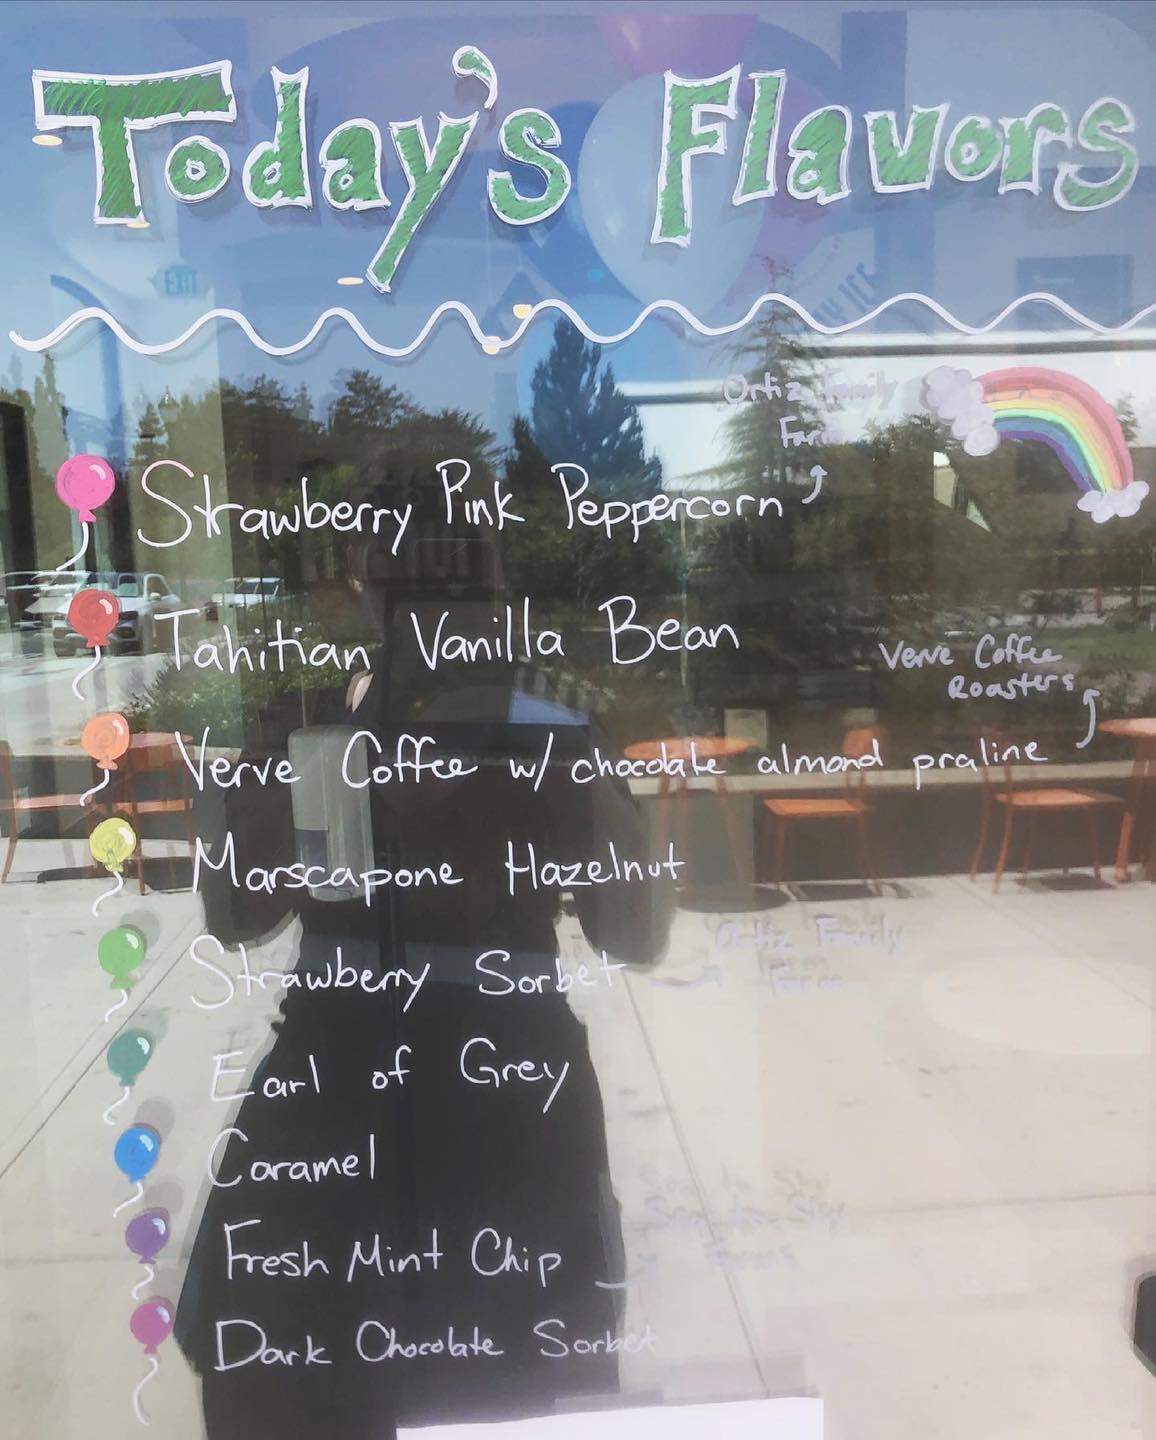 Today's Flavors
EXIT
Ortiz Family
Farm
Strawberry Pink Peppercorn
Tahitian Vanilla Bean
Verve Coffee
Roasters
Verve Coffee w/ chocolate almond praline
Marscapone Hazelnut
Strawberry Sorbet
Ortiz Family
Farm
Earl of Grey
Caramel
Fresh Mint Chip
Farms
Dark Chocolate Sorbet